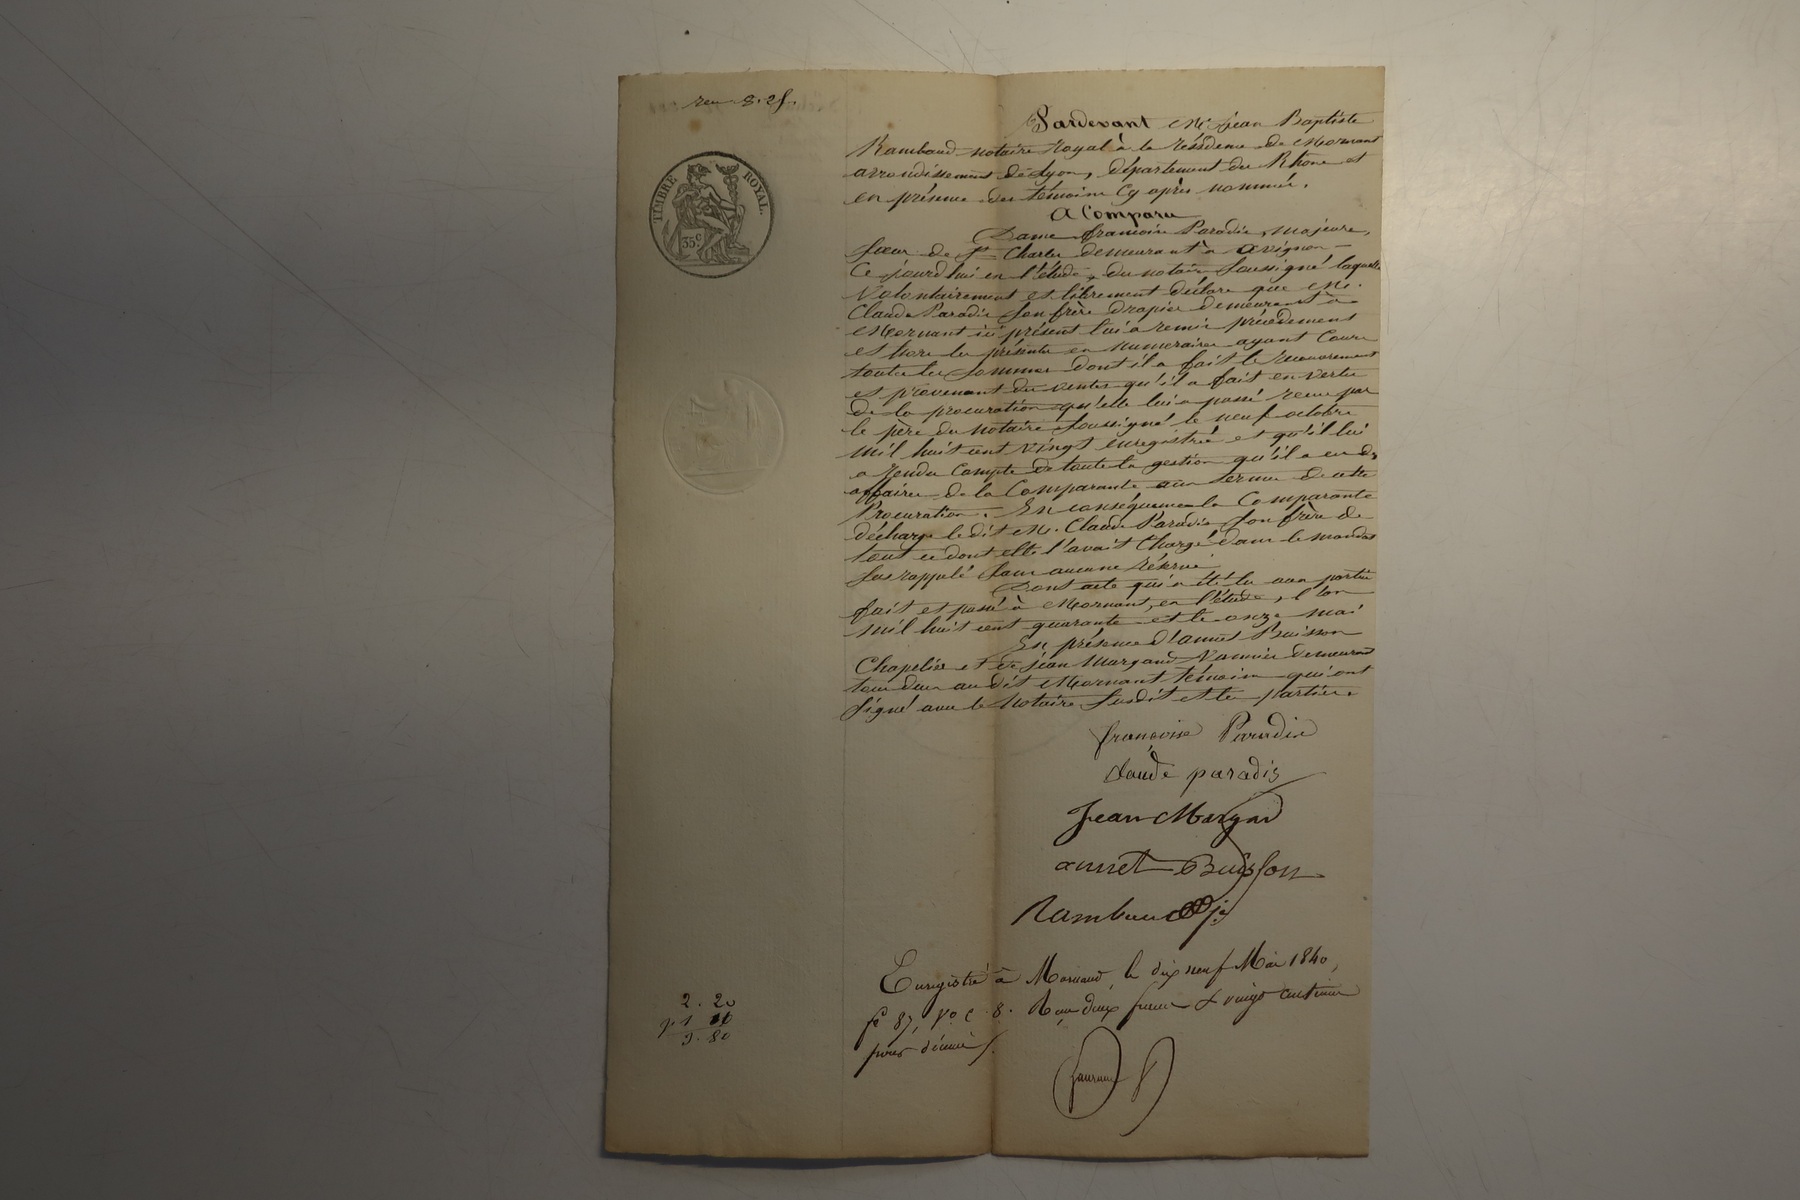 TIMBRE ROYAL.
35c
Pardevant Me jean Baptiste
Rambaud notaire Royal à la résidence de Mornant
arrondissement de Lyon, département du Rhône et
en présence des témoins cy après nommés.
A Comparu
Dame françoise Paradis, majeure,
sœur de St Charles demeurant à avignon
Ce jourd'hui en l'étude du notaire soussigné laquelle
Volontairement et librement déclare que M.
Claude Paradis son frère drapier demeurant à
Mornant ici présent lui a remis précédement
et hors les présentes en numeraires ayant Cours
toutes les sommes dont il a fait le recouvrement
et provenant des ventes qu'il a fait en vertu
de la procuration qu'elle lui a passé reçue par
le père du notaire soussigné le neuf octobre
mil huit cent vingt enregistrée et qu'il lui
a rendu Compte de toute la gestion qu'il a eu des
affaires de la Comparante aux termes de cette
Procuration. En conséquence la Comparante
décharge le dit M. Claude Paradis son frère de
tout ce dont elle l'avait Chargé dans le mandat
sus rappelé sans aucune réserve
Dont acte qui a été lu aux parties
fait et passé à Mornant, en l'étude, l'an
mil huit cent quarante et le onze mai
En présence d'annet Buisson
Chapelier et de jean Margand Vannier demeurant
tous deux au dit Mornant témoins qui ont
signé avec le Notaire susdit et les parties
françoise Paradis
claude paradis
Jean Margand
annet Buisson
Rambaud je
Enregistré à Mornant, le dix neuf Mai 1840,
fo 87, Vo c. 8. Reçu deux francs & vingt centimes
pour décime
2. 20
3. 80